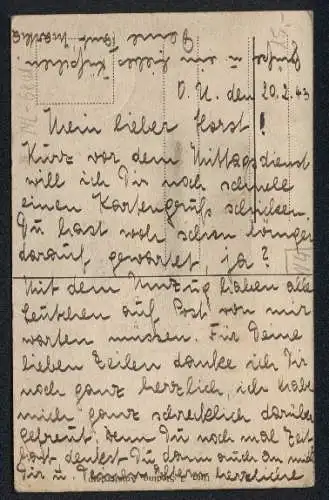 O. U. den 20.2.43
Mein lieber Horst!
Kurz vor dem Mittagsdienst
will ich Dir noch schnell
einen Kartengruß schicken.
Du hast wohl schon länger
darauf gewartet, ja?
Mit dem Umzug haben alle
Leutchen auf Post von mir
warten müssen. Für Deine
lieben Zeilen danke ich Dir
noch ganz herzlich, ich habe
mich ganz schrecklich darüber
gefreut. Wenn Du noch mal Zeit
hast denkst Du dann auch an mich
Dir u. Deinen Eltern herzliche
Grüße u. ein liebes Küßchen
Deine